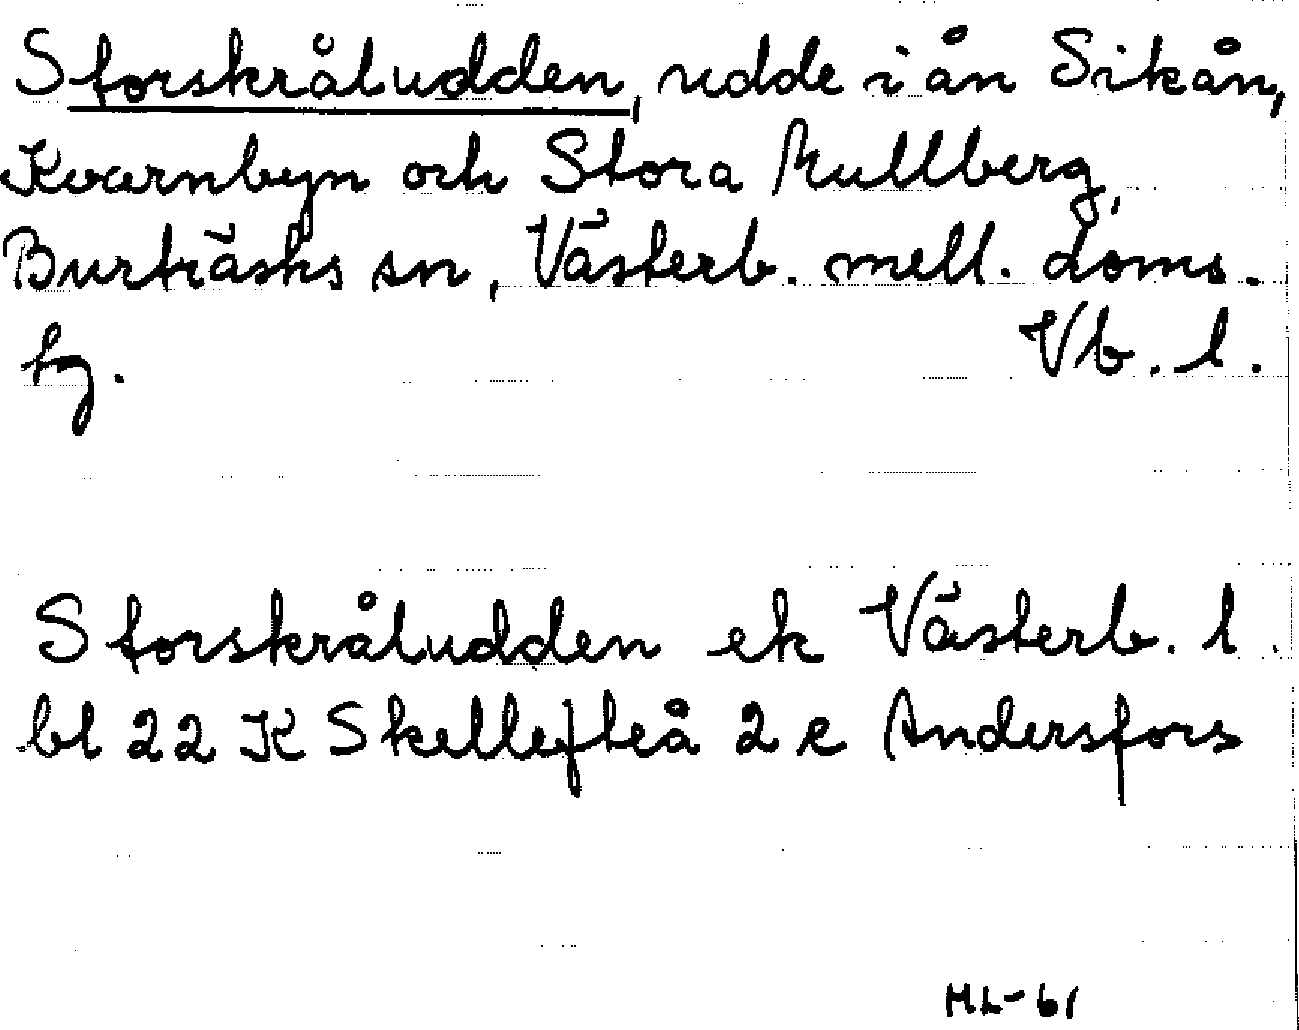 Storskråludden, udde i ån Sikån,
Kvarnbyn och Stora Kullberg,
Burträsks sn, Västerb. mell. doms.
hg. Vb. l.
Storskråludden ek Västerb. l.
bl 22 K Skellefteå 2 e Andersfors
ML-61